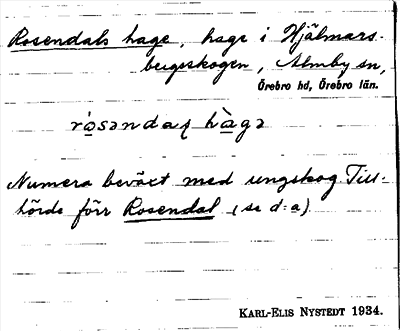 Rosendals hage, hage i Hjälmars-
bergsskogen, Almby sn,
Örebro hd, Örebro län.
rósəndaɭ hàgə
Numera beväxt med ungskog. Till-
hörde förr Rosendal (se d:a).
KARL-ELIS NYSTEDT 1934.